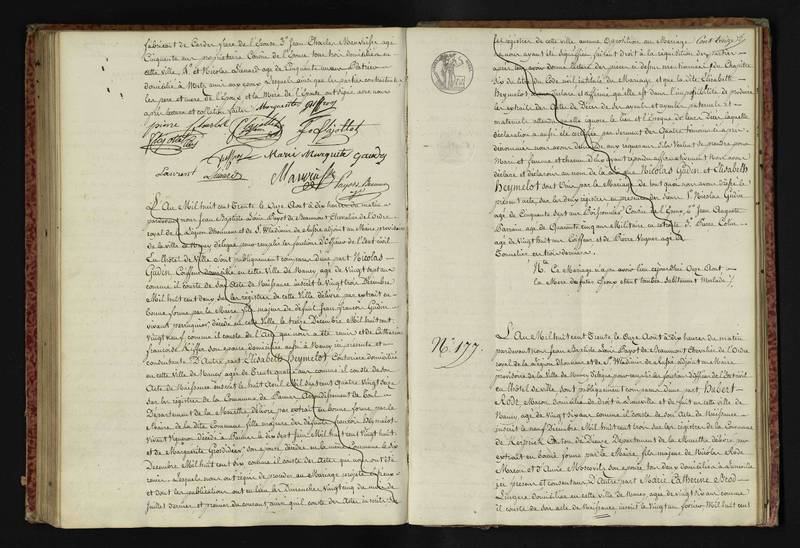 fabricant de
Cinquante six propriétaire Cousin de l'Epoux tous trois domiciliés en
cette ville, et Nicolas Lienard agé de Cinquante
domicilié à Metz ami aux époux, lesquels ainsi que les parties contractantes
les pere et mere de l'Epoux et la Mere de l'Epouse ont signé avec nous
après lecture et collation faites. Marguerite
pierre
Laurent Marie Marguerite Gaudry
Lienard
L'An Mil huit cent Trente le Onze Août à dix heures du matin
pardevant nous Jean Baptiste Louis Payot de Beaumont Chevalier de l'Ordre
royal de la Légion d'honneur et de St. Wladimir de Russie adjoint au Maire provisoire
de la ville de Nancy délégué pour remplir les fonctions d'Officier de l'Etat civil
En l'hôtel de Ville sont publiquement comparus d'une part Nicolas
Gudin Coiffeur domicilié en cette Ville de Nancy, agé de Vingt sept ans
comme il conste de son Acte de Naissance inscrit le vingt trois Décembre
Mil huit cent deux sur les registres de cette Ville délivré par extrait en
bonne forme par le Maire, fils majeur de défunt Jean François Gudin
vivant perruquier, décédé en cette Ville, le treize Décembre Mil huit cent
Vingt neuf, comme il conste de l'Acte qui nous a été remis et de Catherine
francoise Kiffer son épouse domiciliée aussi à Nancy ici présente et
consentante D'Autre part Elisabeth Heymelot Couturiere domiciliée
en cette Ville de Nancy agée de Trente quatre ans comme il conste de son
Acte de Naissance inscrit le huit Aout Mil sept cent quatre Vingt seize
sur les registres de la Commune de Pannes Arrondissement de Toul
Département de la Meurthe délivré par extrait en bonne forme par le
Maire de la dite Commune fille majeure des défunts françois Heymelot
vivant Vigneron décédé à Pannes le dix sept Juin Mil huit cent Vingt huit
et de Marguerite Grosdidier son épouse, décédée en la même Commune le dix
Décembre Mil huit cent dix comme il conste des Actes qui nous ont été
remis, lesquels nous ont requis de procéder au Mariage projeté entr'eux
et dont les publications ont eu lieu les Dimanches Vingt cinq du mois de
Juillet dernier et premier du courant, ainsi qu'il conste des Actes inscrits sur
les registres de cette ville aucune Opposition au Mariage
ne nous ayant été signifiée, faisant droit à la réquisition des parties
après avoir donné lecture des pièces ci-dessus mentionnées, du Chapitre
Six du titre du Code civil intitulé du Mariage et que la dite Elisabeth
Heymelot nous a déclaré et affirmé qu'elle est dans l'impossibilité de produire
les extraits des Actes de Décès de ses ayeuls et ayeules paternels et
maternels attendu qu'elle ignore le lieu et l'époque de leur décès laquelle
déclaration a aussi été certifiée par serment des Quatre témoins ci-après
dénommés, nous avons demandé aux requérans s'ils veulent se prendre pour
Mari et femme et chacun d'eux ayant répondu affirmativement, Nous avons
déclaré et déclarons au nom de la loi que Nicolas Gudin et Elisabeth
Heymelot sont Unis par le Mariage. De tout quoi nous avons dressé le
présent acte, sur les deux registres en présence des Sieurs Nicolas Gudin
agé de Cinquante sept ans Poissonnier Cousin de l'Epoux, Jean Auguste
Barrois agé de Quarante cinq ans Militaire en retraite Pierre Colin
agé de Vingt huit ans Coiffeur et de Pierre Vagner agé de
Tonnelier en trois derniers
N. Ce Mariage n'a pas avoir lieu cejourd'hui Onze Aout
la Mere du futur Epoux étant tombée subitement Malade
N°. 177.
L'An Mil huit cent Trente, le Onze Aout à dix heures du matin
pardevant nous Jean Baptiste Louis Payot de Beaumont Chevalier de l'Ordre
royal de la Légion d'honneur et de St. Wladimir de Russie adjoint au Maire
provisoire de la Ville de Nancy délégué pour remplir les fonctions d'officier de l'Etat civil
en l'hôtel de ville, sont publiquement comparus d'une part Hubert
Rode Macon domicilié de droit à Luneville et de fait en cette ville de
Nancy, agé de Vingt six ans comme il conste de son Acte de Naissance
inscrit le neuf Décembre Mil huit cent trois sur les registres de la Commune
de Canton de Dieuze Departement de la Meurthe délivré par
extrait en bonne forme par le Maire, fils majeur de Nicolas Rode
Macon et d'Anne son épouse tous deux domiciliés à Luneville
ici présens et consentans D'Autre part Marie Catherine Brod
Lingere domiciliée en cette ville de Nancy, agée de Vingt six ans comme
il conste de son acte de Naissance inscrit le Vingt un fevrier Mil huit cent